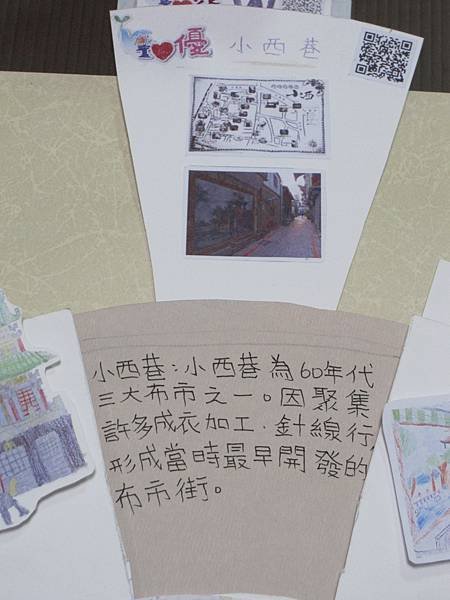 優 小西巷
小西巷:小西巷為60年代
三大布市之一。因聚集
許多成衣加工、針線行,
形成當時最早開發的
布市街。